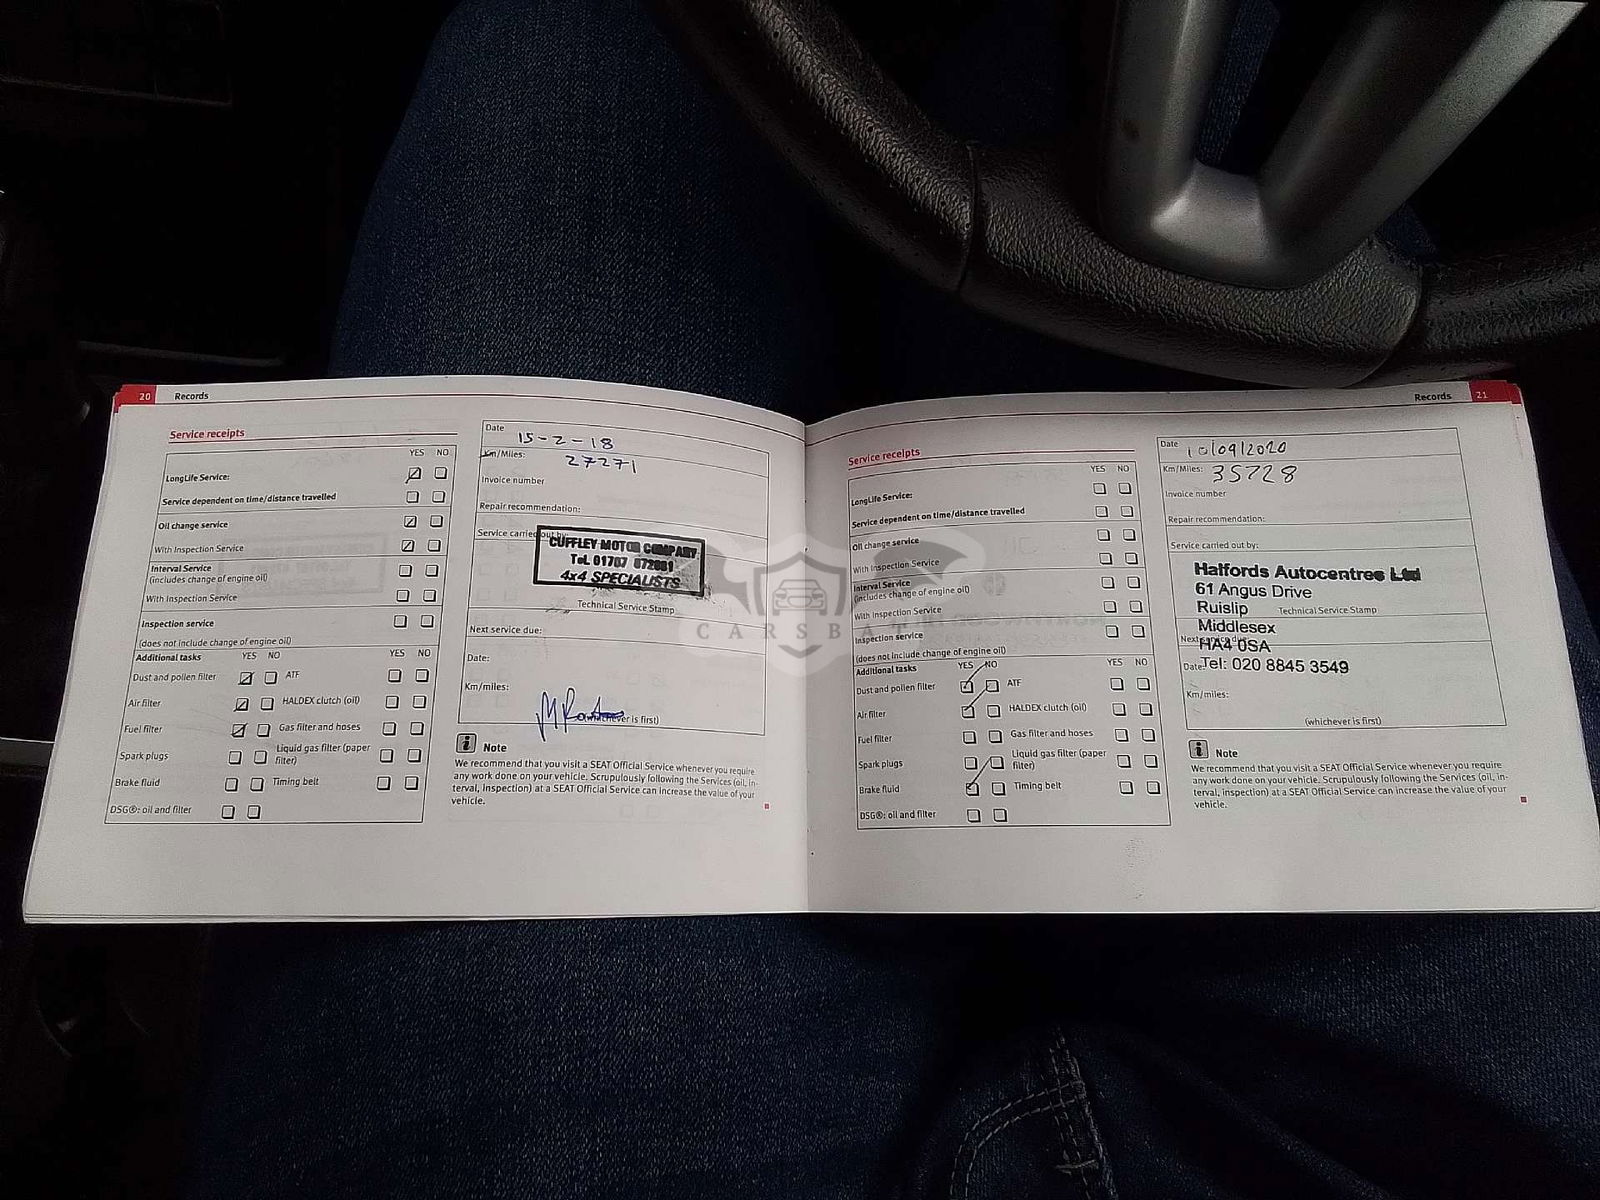 20 Records
Service receipts
YES NO
LongLife Service:
Service dependent on time/distance travelled
Oil change service
With Inspection Service
Interval Service
(includes change of engine oil)
With Inspection Service
Inspection service
(does not include change of engine oil)
Additional tasks YES NO YES NO
Dust and pollen filter ATF
Air filter HALDEX clutch (oil)
Fuel filter Gas filter and hoses
Spark plugs Liquid gas filter (paper
filter)
Brake fluid Timing belt
DSG®: oil and filter
Date 15-2-18
Km/Miles: 27271
Invoice number
Repair recommendation:
Service carried out by:
CUFFLEY MOTOR COMPANY
Tel. 01707 872981
4x4 SPECIALISTS
Technical Service Stamp
Next service due:
Date:
Km/miles:
(whichever is first)
i Note
We recommend that you visit a SEAT Official Service whenever you require
any work done on your vehicle. Scrupulously following the Services (oil, in-
terval, inspection) at a SEAT Official Service can increase the value of your
vehicle.
Records 21
Service receipts
YES NO
LongLife Service:
Service dependent on time/distance travelled
Oil change service
With Inspection Service
Interval Service
(includes change of engine oil)
With Inspection Service
Inspection service
(does not include change of engine oil)
Additional tasks YES NO YES NO
Dust and pollen filter ATF
Air filter HALDEX clutch (oil)
Fuel filter Gas filter and hoses
Spark plugs Liquid gas filter (paper
filter)
Brake fluid Timing belt
DSG®: oil and filter
Date 10/09/2020
Km/Miles: 35728
Invoice number
Repair recommendation:
Service carried out by:
Halfords Autocentres Ltd
61 Angus Drive
Ruislip Technical Service Stamp
Middlesex
Next service due:
HA4 0SA
Date: Tel: 020 8845 3549
Km/miles:
(whichever is first)
i Note
We recommend that you visit a SEAT Official Service whenever you require
any work done on your vehicle. Scrupulously following the Services (oil, in-
terval, inspection) at a SEAT Official Service can increase the value of your
vehicle.
CARSBA